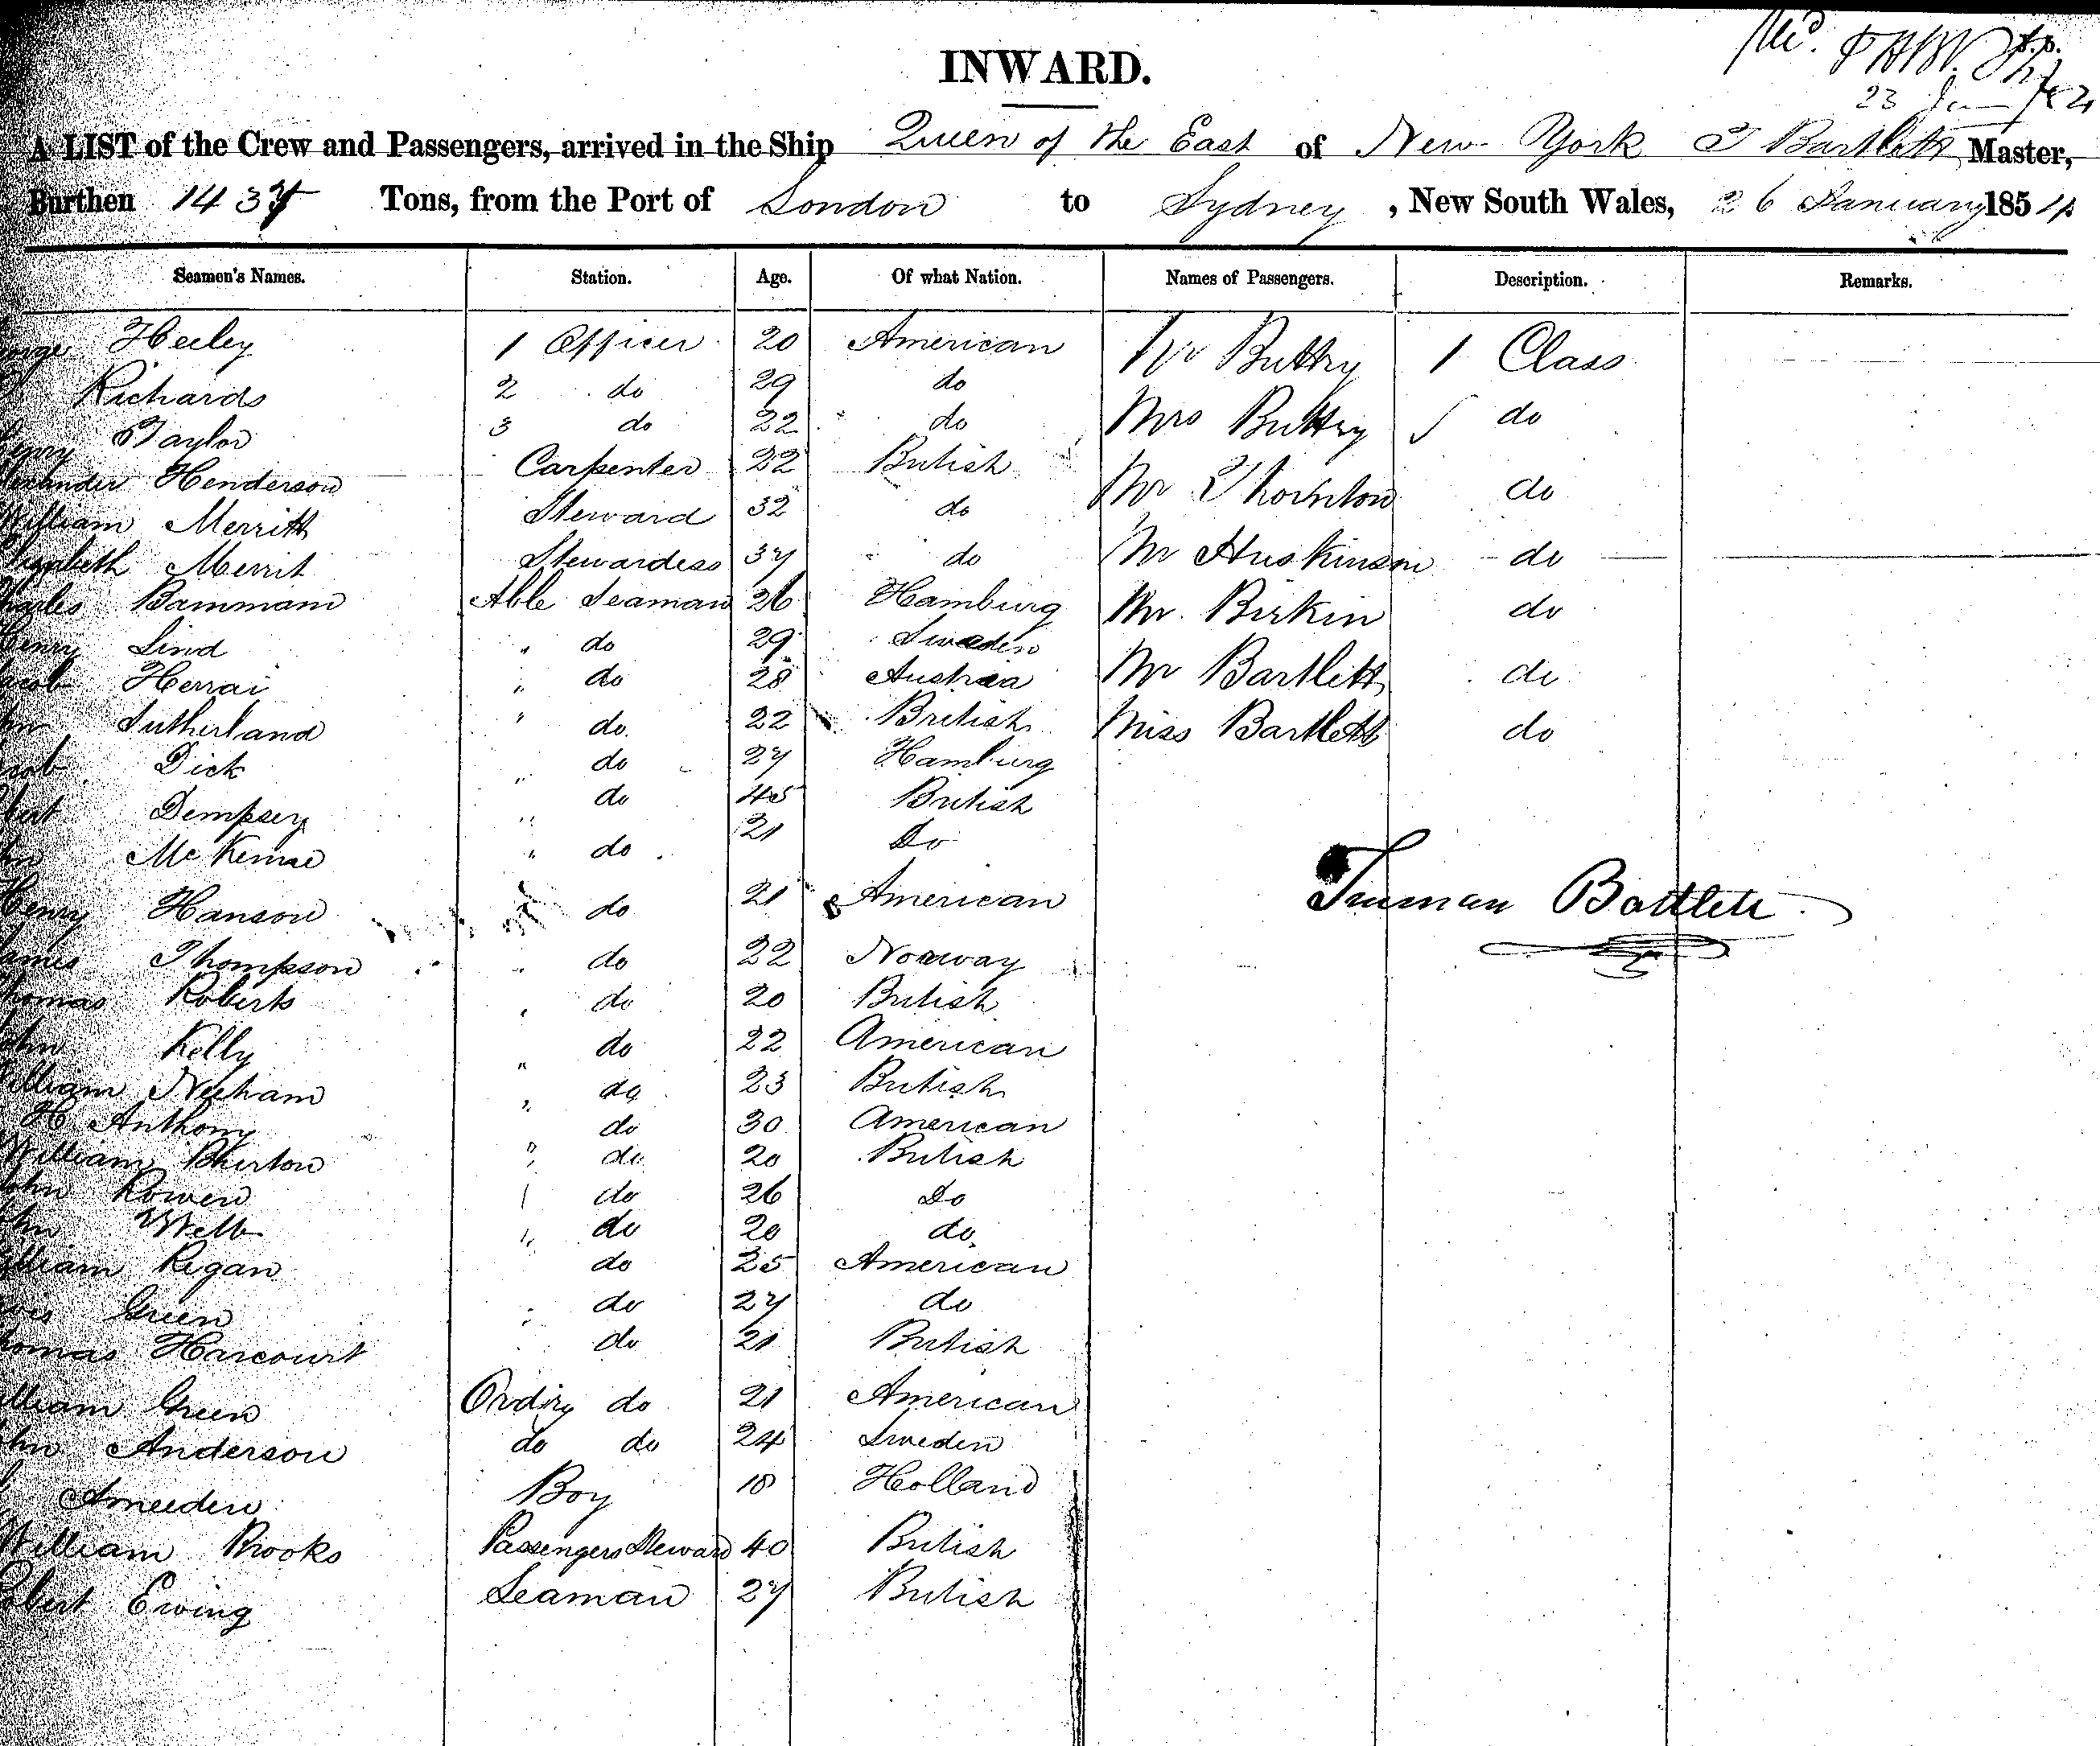 INWARD.
23 Jan
A LIST of the Crew and Passengers, arrived in the Ship Queen of the East of New York T Bartlett Master,
Burthen Tons, from the Port of London to Sydney, New South Wales, 26 January 1854
Seamen's Names. Station. Age. Of what Nation. Names of Passengers. Description. Remarks.
Heeley 1 Officer 20 American Mr Buttry 1 Class
Richards 2 do 29 do
Taylor 3 do 22 do Mrs Buttry do
Henderson Carpenter 22 British
Mr Thornton do
William Merritt Steward 32 do
Merrit Stewardess 37 do Mr Huskinson do
Bammann Able Seaman 26 Hamburg Mr. Birkin do
Henry Lind " do 29 Sweden
Herrai " do 28 Austria Mr Bartlett do
Sutherland " do 22 British Miss Bartlett do
Dick " do 27 Hamburg
Dempsey " do 45 British
McKenzie " do 21 Do
Henry Hanson do 21 American
Truman Bartlett
Thompson " do 22 Norway
Roberts " do 20 British
Kelly " do 22 American
William Neeham " do 23 British
H Anthony do 30 American
William " do 20 British
John Rowen do 26 Do
Webb " do 20 do
William Regan do 25 American
Green " do 27 do
Thomas Harcourt do 21 British
William Green Ordiny do 21 American
Anderson do do 24 Sweden
Boy 18 Holland
William Brooks Passengers Steward 40 British
Ewing Seaman 27 British